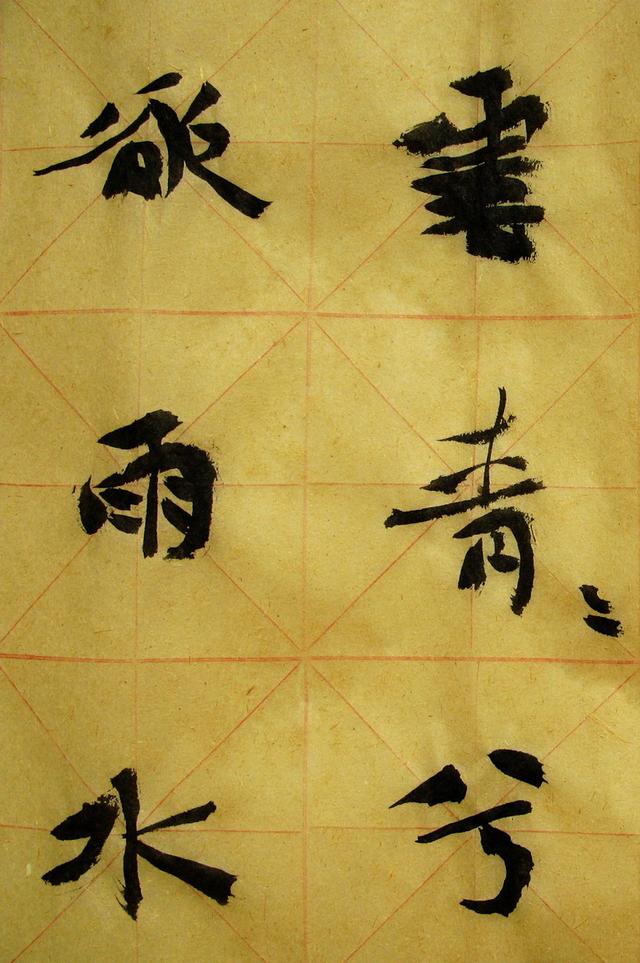 雲青〻兮
欲雨水